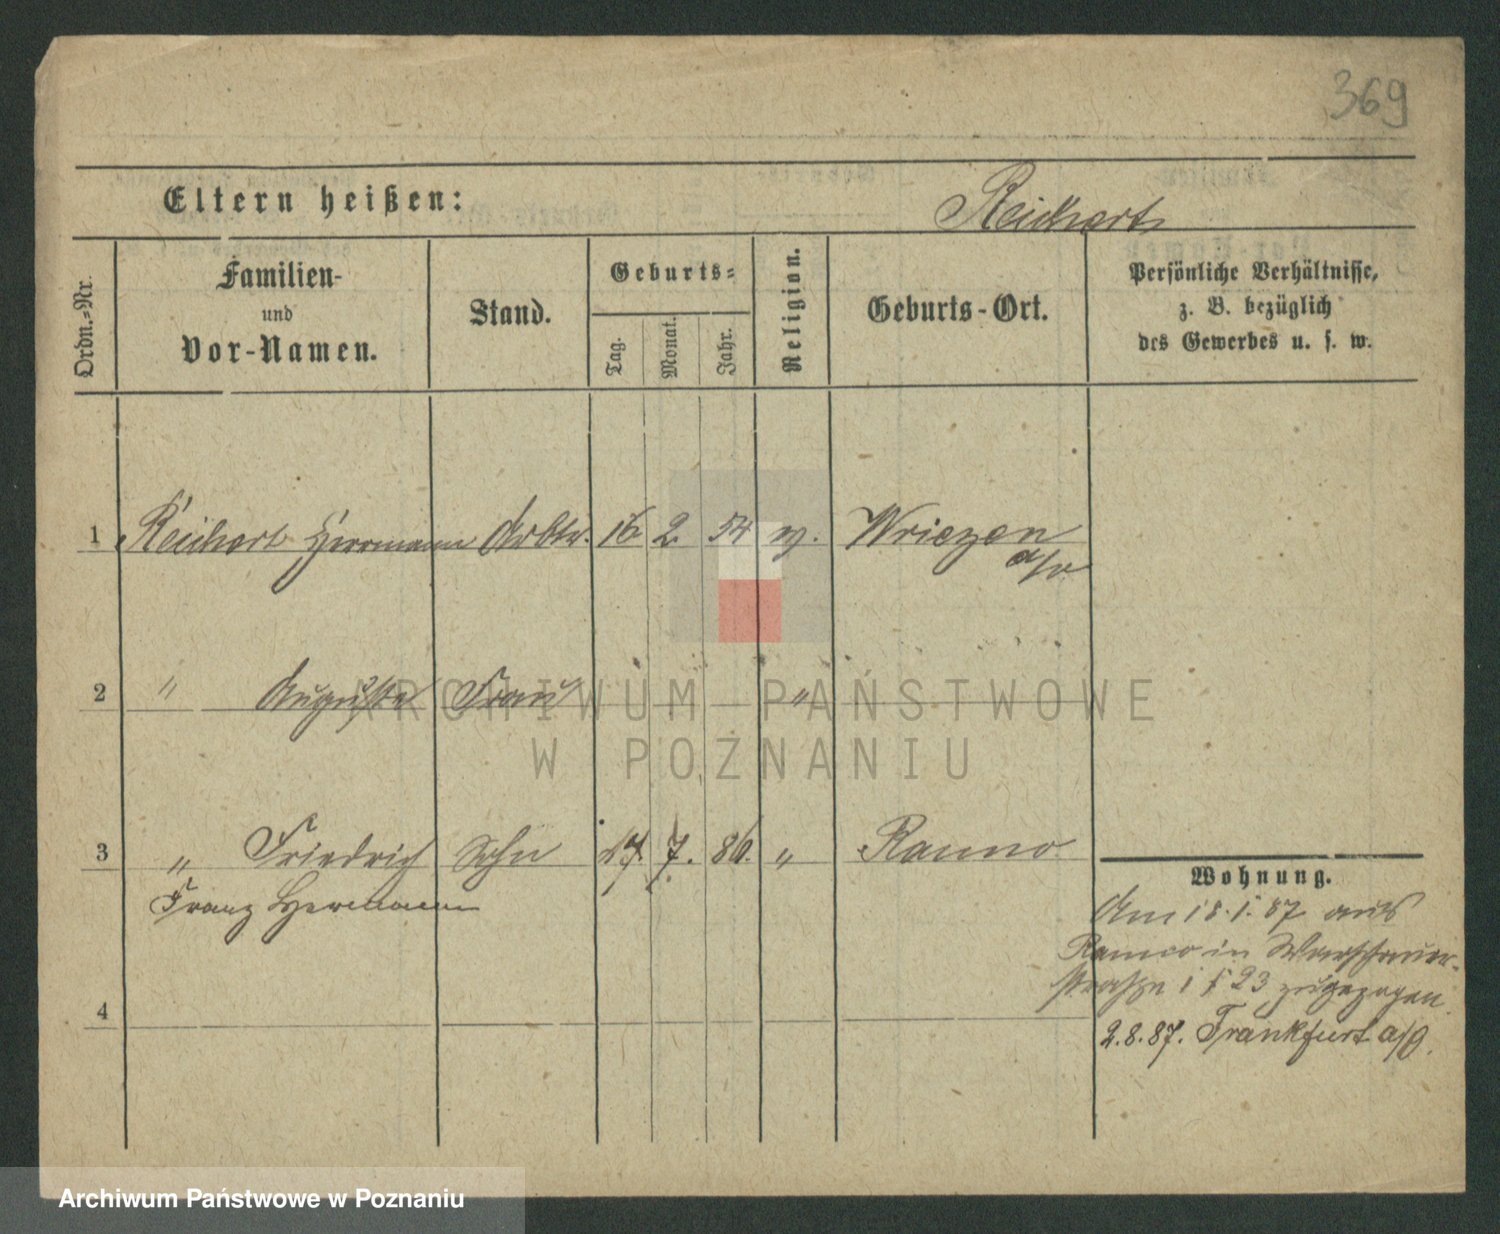 369
Eltern heißen: Reichert
Ordn.-Nr.
Familien-
und
Vor-Namen.
Stand.
Geburts-
Tag.
Monat.
Jahr.
Religion.
Geburts-Ort.
Persönliche Verhältnisse,
z. B. bezüglich
des Gewerbes u. s. w.
1 Reichert Herrmann Arbtr. 16. 2. 54 Wriezen
a/o
2 " Auguste Frau "
3 " Friedrich Sohn 7. 86. "
Franz Hermann
Wohnung.
Am 18.1.87 aus
in Warschauer-
straße 23 zugezogen.
2.8.87. Frankfurt a/O.
4
ARCHIWUM PAŃSTWOWE
W POZNANIU
Archiwum Państwowe w Poznaniu